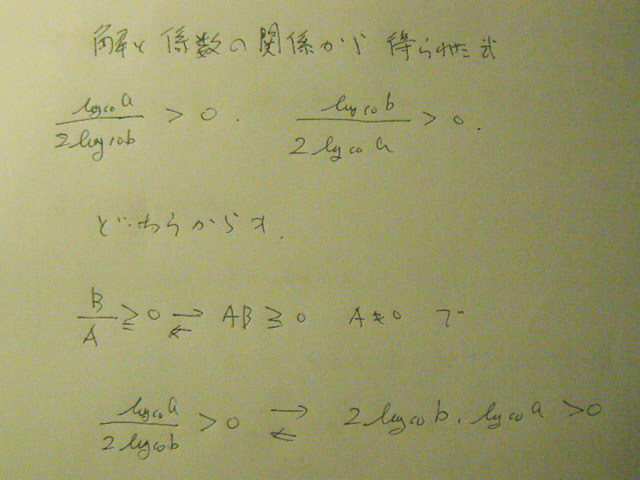 解と係数の関係から 得られた式
log₁₀a / 2log₁₀b > 0. log₁₀b / 2log₁₀a > 0.
どちらからでも.
B/A ≧ 0 ⇄ AB ≧ 0 A ≠ 0 で
log₁₀a / 2log₁₀b > 0 ⇄ 2log₁₀b・log₁₀a > 0